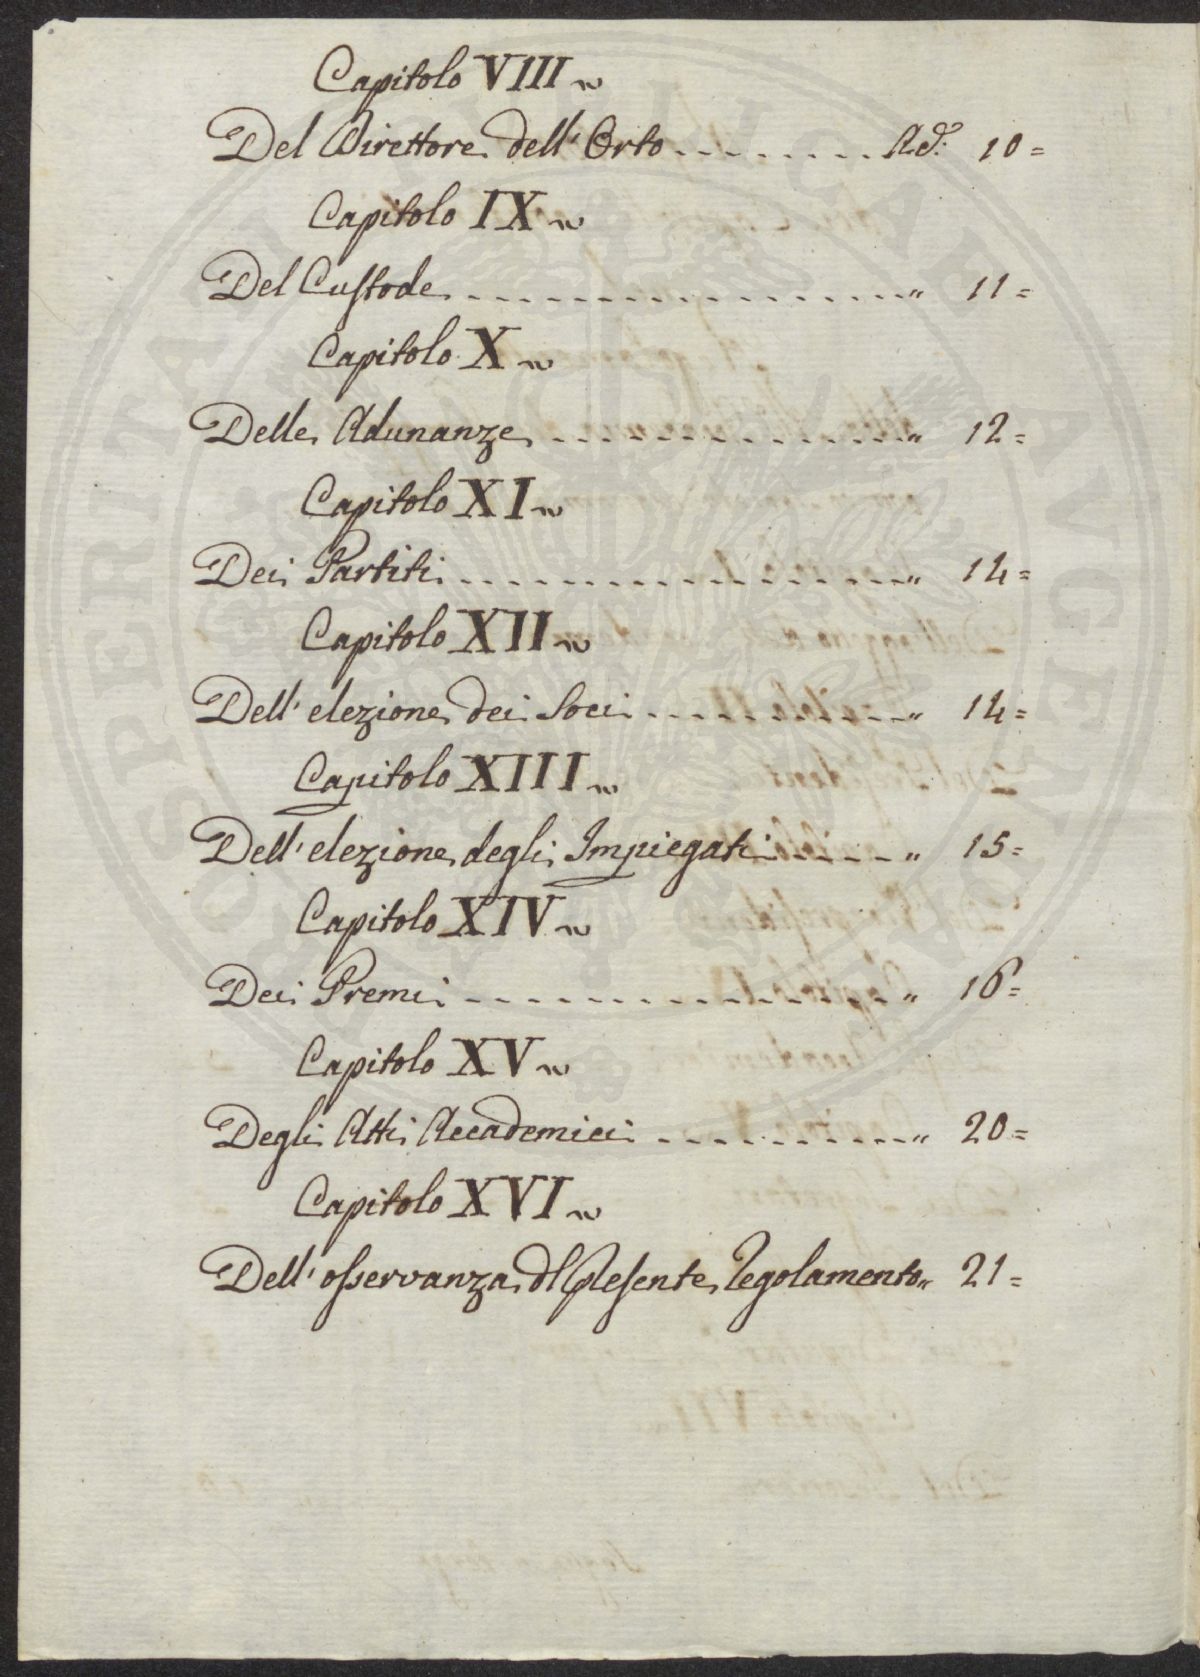 Capitolo VIII
Del Direttore dell'Orto . . . . . . . . 10 =
Capitolo IX
Del Custode . . . . . . . . . . . . . . . . " 11 =
Capitolo X
Delle Adunanze . . . . . . . . . . . . . " 12 =
Capitolo XI
Dei Partiti . . . . . . . . . . . . . . . . " 14 =
Capitolo XII
Dell'elezione dei Soci . . . . . . . . . " 14 =
Capitolo XIII
Dell'elezione degli Impiegati . . . . . " 15 =
Capitolo XIV
Dei Premi . . . . . . . . . . . . . . . . " 16 =
Capitolo XV
Degli Atti Accademici . . . . . . . . . " 20 =
Capitolo XVI
Dell'osservanza dl presente regolamento " 21 =